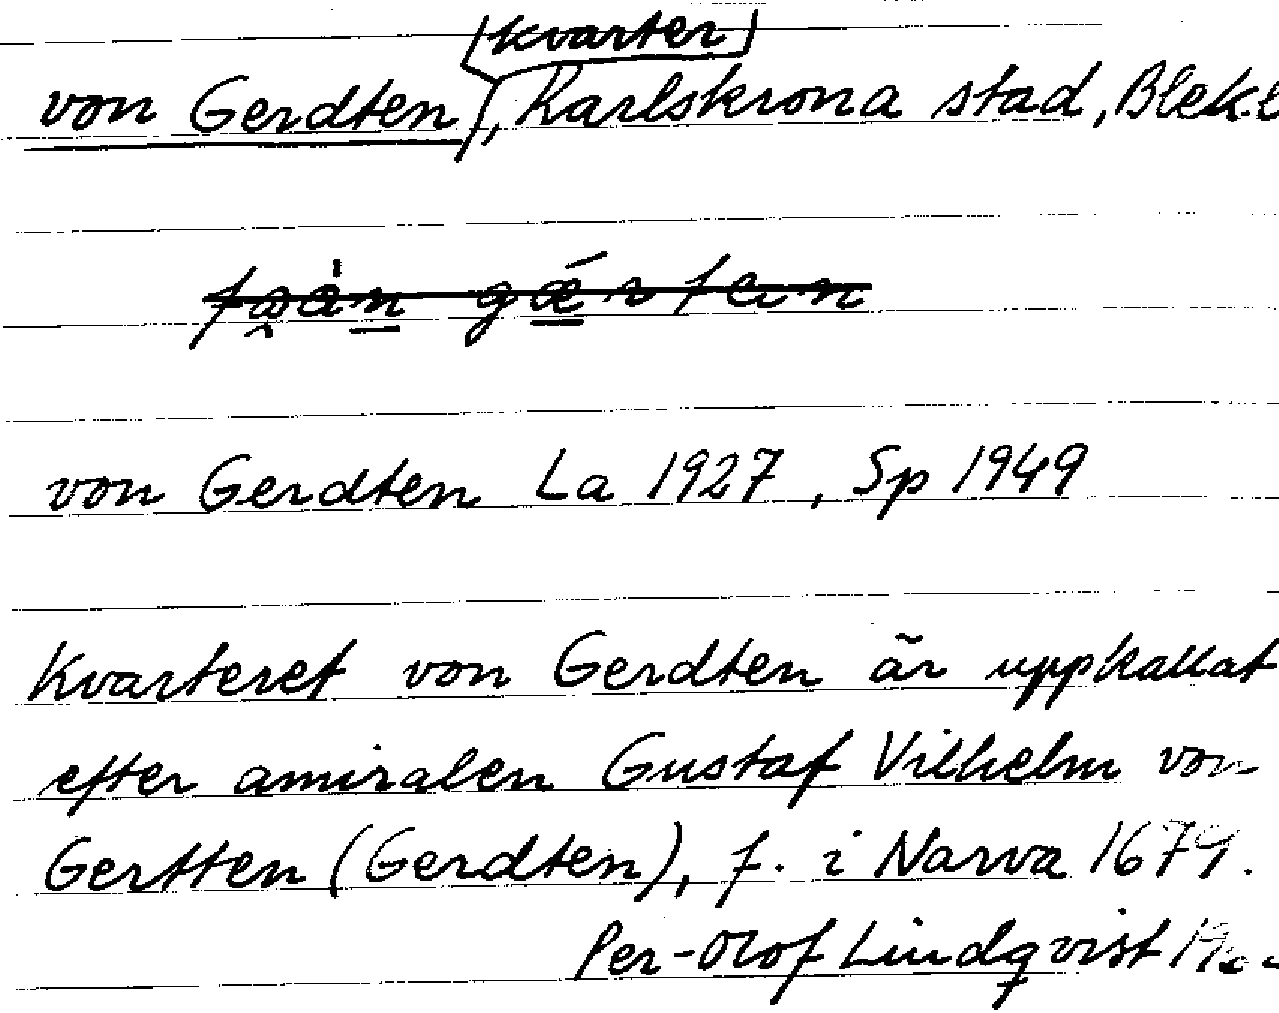 kvarter
von Gerdten, Karlskrona stad, Blek.l
von Gerdten La 1927, Sp 1949
Kvarteret von Gerdten är uppkallat
efter amiralen Gustaf Vilhelm von
Gertten (Gerdten), f. i Narva 1679.
Per-Olof Lindqvist